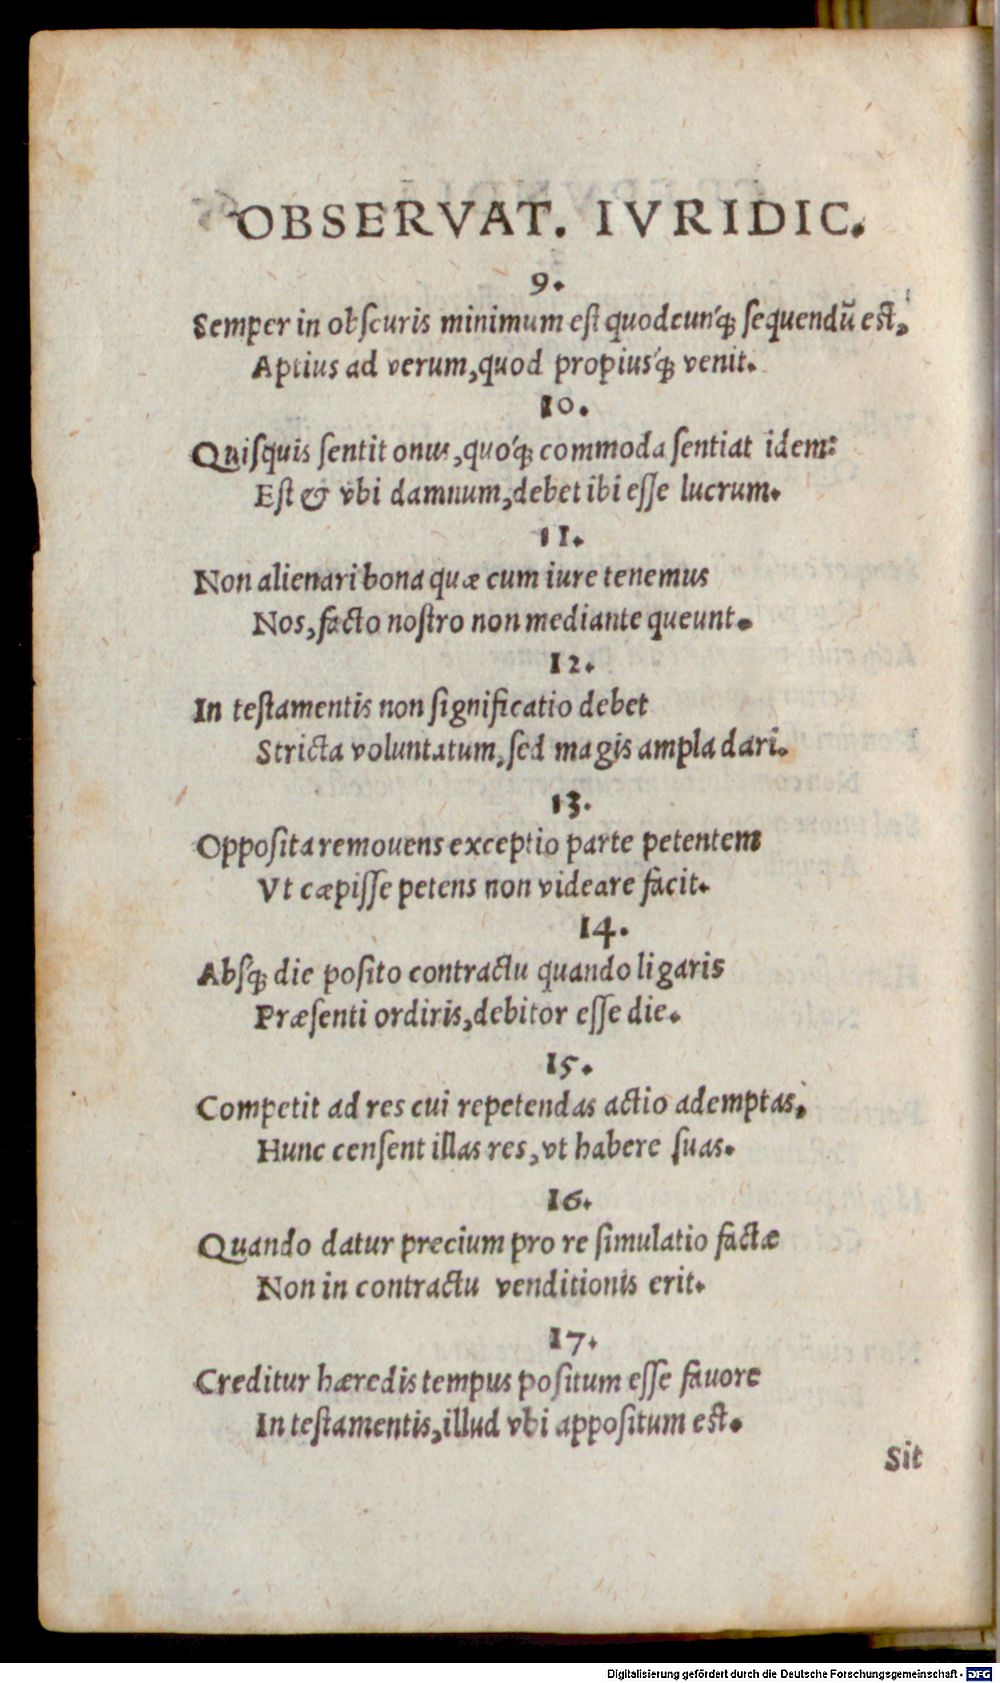 OBSERVAT. IVRIDIC.
9.
Semper in obſcuris minimum eſt quodcun´q; ſequendū eſt,
Aptius ad verum, quod propius´q; venit.
10.
Quiſquis ſentit onus, quo´q; commoda ſentiat idem:
Eſt & vbi damnum, debet ibi eſſe lucrum.
11.
Non alienari bona quæ cum iure tenemus
Nos, facto noſtro non mediante queunt.
12.
In teſtamentis non ſignificatio debet
Stricta voluntatum, ſed magis ampla dari.
13.
Oppoſita remouens exceptio parte petentem
Vt cæpiſſe petens non videare facit.
14.
Abſq; die poſito contractu quando ligaris
Præſenti ordiris, debitor eſſe die.
15.
Competit ad res cui repetendas actio ademptas,
Hunc cenſent illas res, vt habere ſuas.
16.
Quando datur precium pro re ſimulatio factæ
Non in contractu venditionis erit.
17.
Creditur hæredis tempus poſitum eſſe fauore
In teſtamentis, illud vbi appoſitum eſt.
Sit
Digitalisierung gefördert durch die Deutsche Forschungsgemeinschaft - DFG